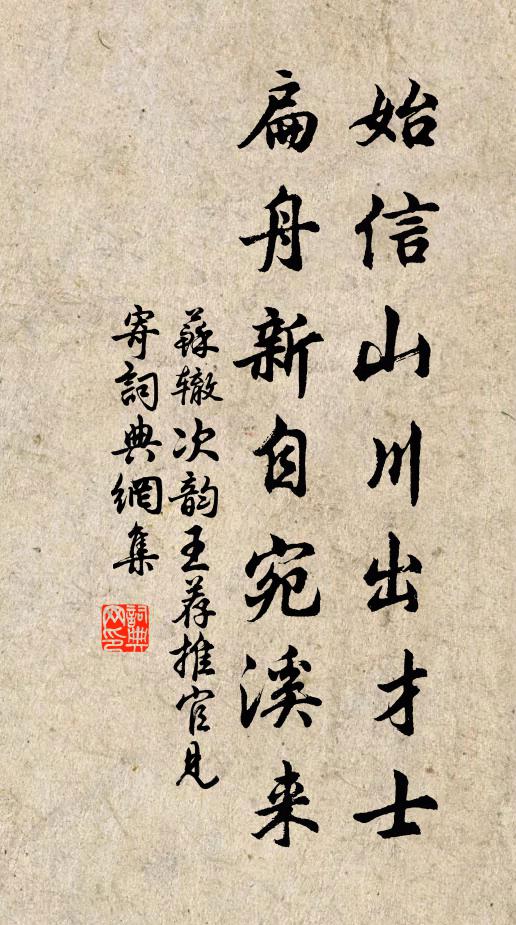 始信山川出才士
扁舟新自宛溪来
蘇辙次韵王荐推官見
寄詞典網集
詞典网印